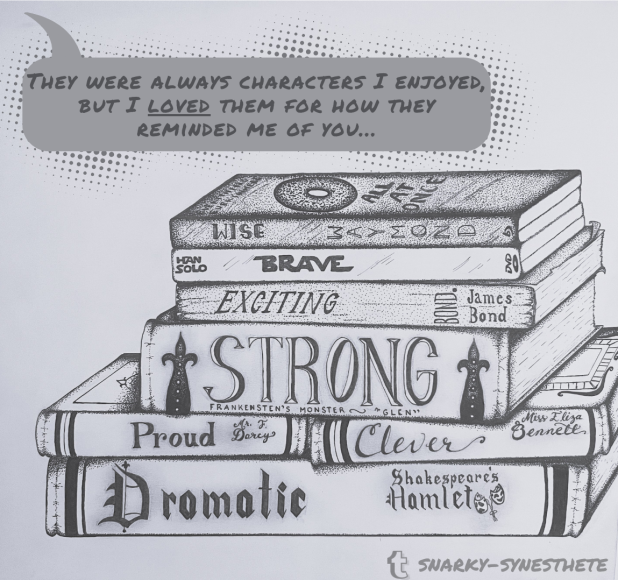 THEY WERE ALWAYS CHARACTERS I ENJOYED,
BUT I LOVED THEM FOR HOW THEY
REMINDED ME OF YOU...
ALL AT
ONCE
WISE WAYMOND
HAN SOLO BRAVE
EXCITING BOND. James Bond
STRONG
FRANKENSTEN'S MONSTER ~ "GLEN"
Proud Mr. F. Darcy
Clever Miss Eliza Bennett
Dramatic Shakespeare's Hamlet
t SNARKY-SYNESTHETE